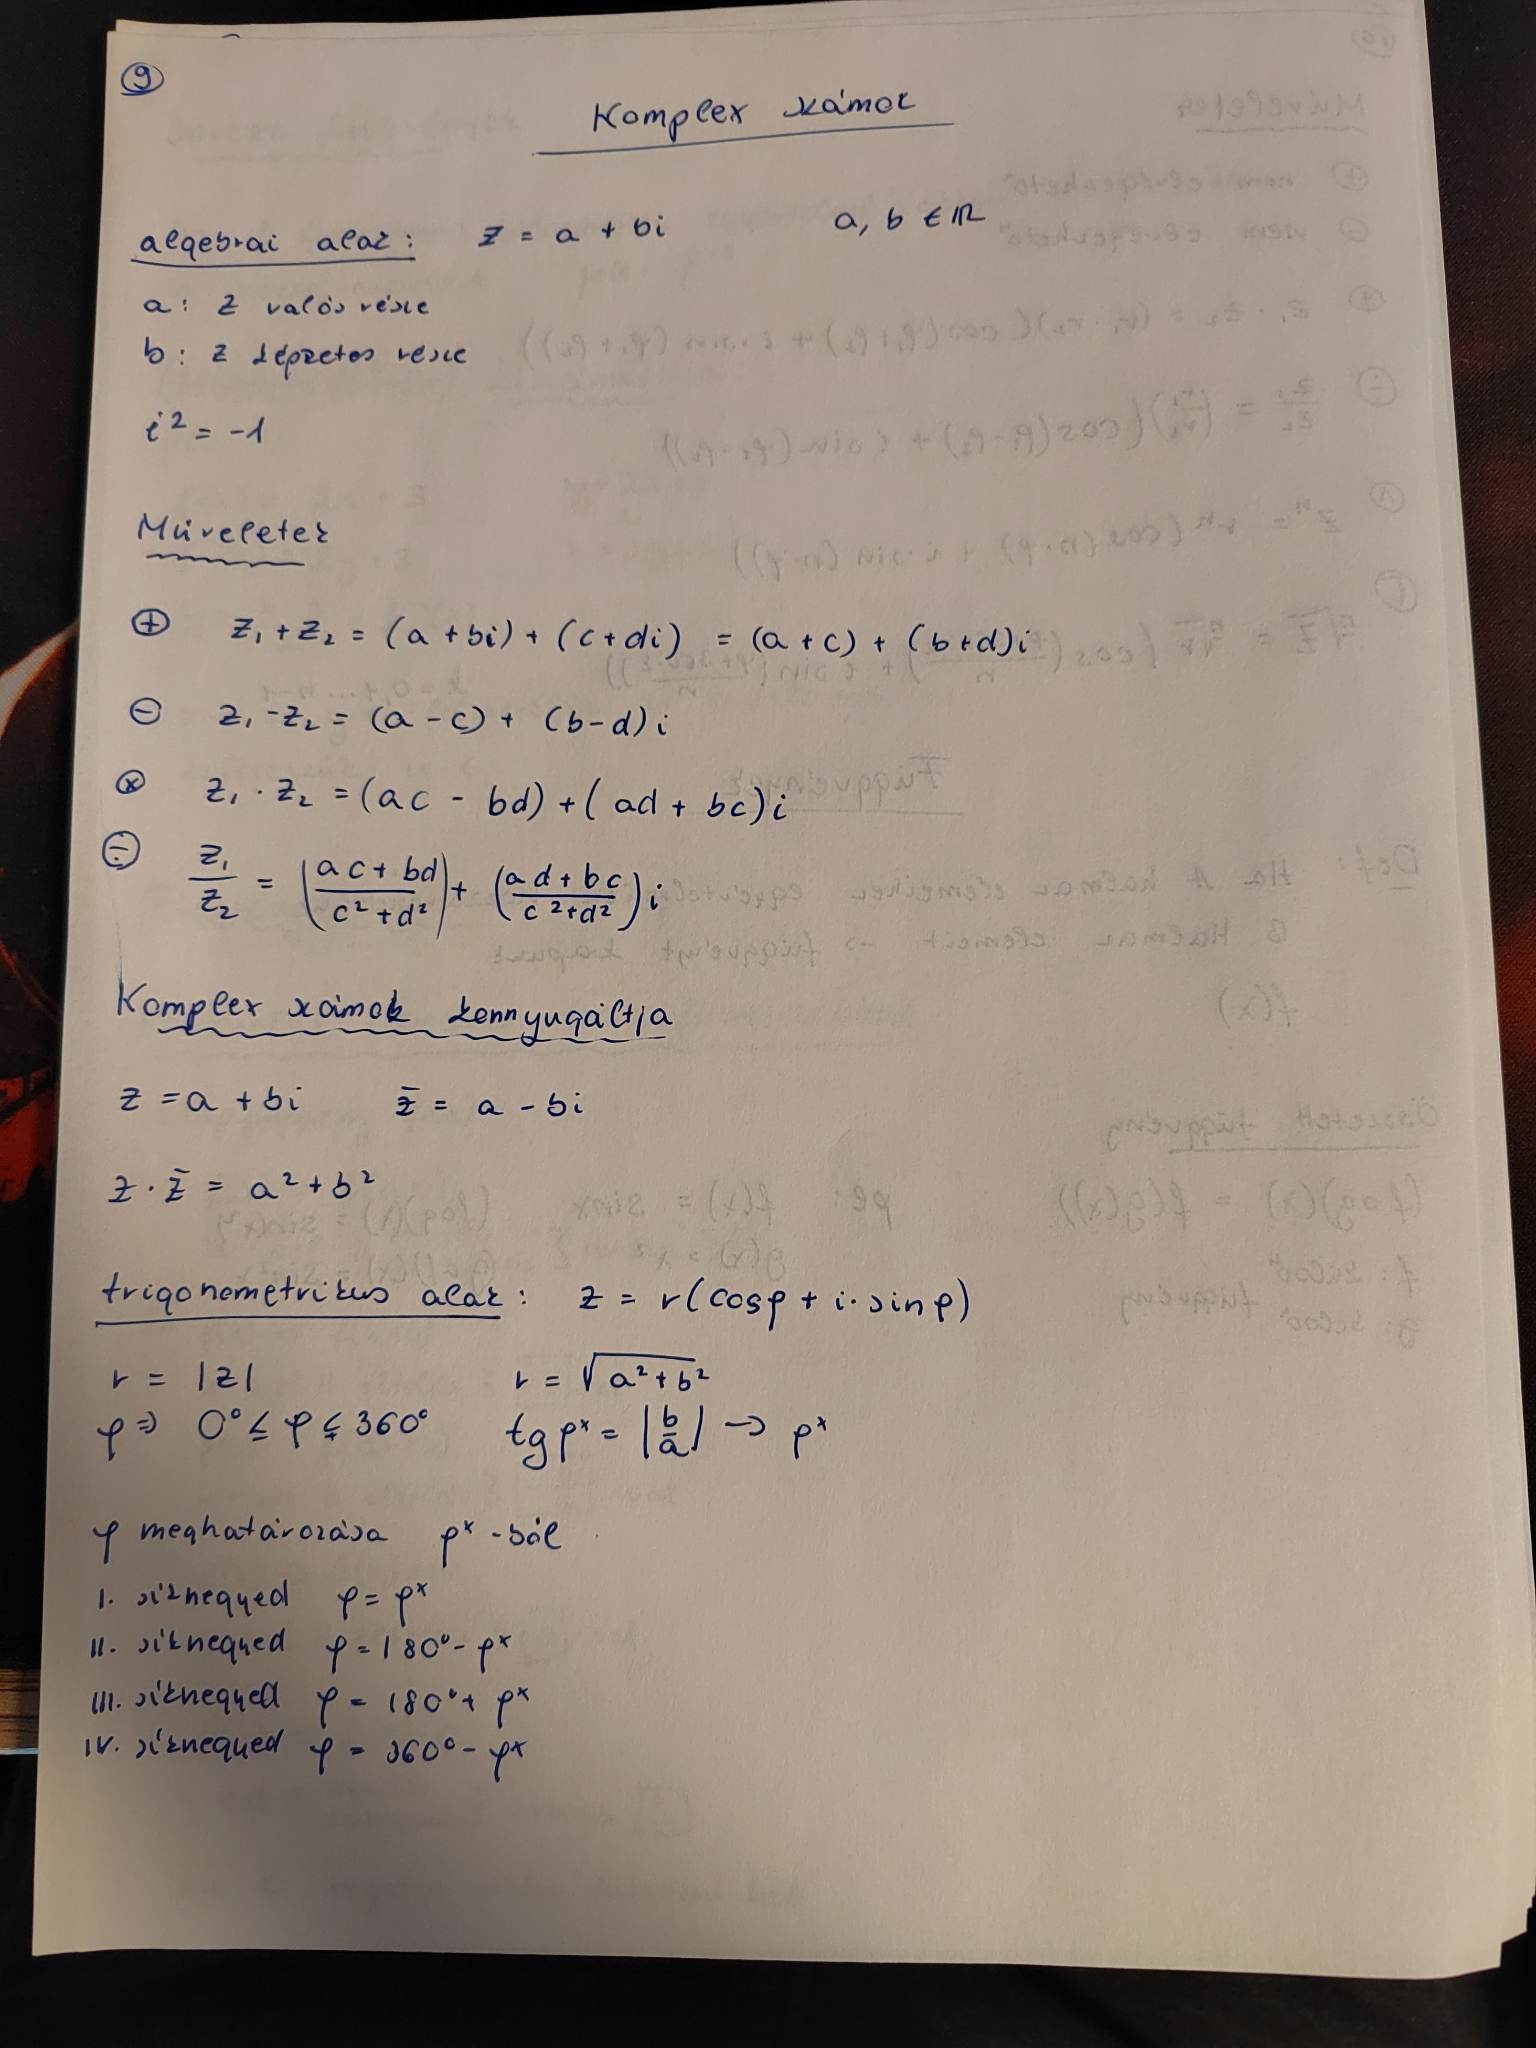 9
Komplex számok
algebrai alak: z = a + bi a, b ∈ ℝ
a: z valós része
b: z képzetes része
i² = -1
Műveletek
⊕ z₁ + z₂ = (a + bi) + (c + di) = (a + c) + (b + d)i
⊖ z₁ - z₂ = (a - c) + (b - d)i
⊗ z₁ · z₂ = (ac - bd) + (ad + bc)i
÷ z₁/z₂ = ((ac + bd)/(c² + d²)) + ((ad + bc)/(c² + d²))i
Komplex számok konnyugáltja
z = a + bi z̄ = a - bi
z · z̄ = a² + b²
trigonometrikus alak: z = r(cosφ + i·sinφ)
r = |z| r = √(a² + b²)
φ ⇒ 0° ≤ φ ≨ 360° tgφ* = |b/a| → φ*
φ meghatározása φ*-ból
I. síknegyed φ = φ*
II. síknegyed φ = 180° - φ*
III. síknegyed φ = 180° + φ*
IV. síknegyed φ = 360° - φ*